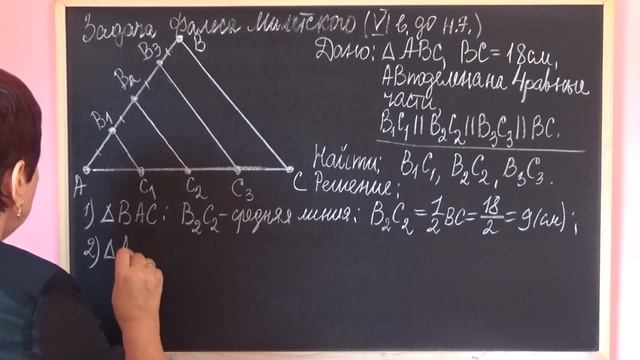 Задача Фалеса Милетского (VI в. до н.э.)
Дано: △ABC, BC=18см,
AB поделена на 4 равные
части
B₁C₁ || B₂C₂ || B₃C₃ || BC.
Найти: B₁C₁, B₂C₂, B₃C₃.
B
B3
B2
B1
A C1 C2 C3 C
Решение:
1) △BAC: B₂C₂-средняя линия; B₂C₂ = 1/2 BC = 18/2 = 9(см);
2) △A